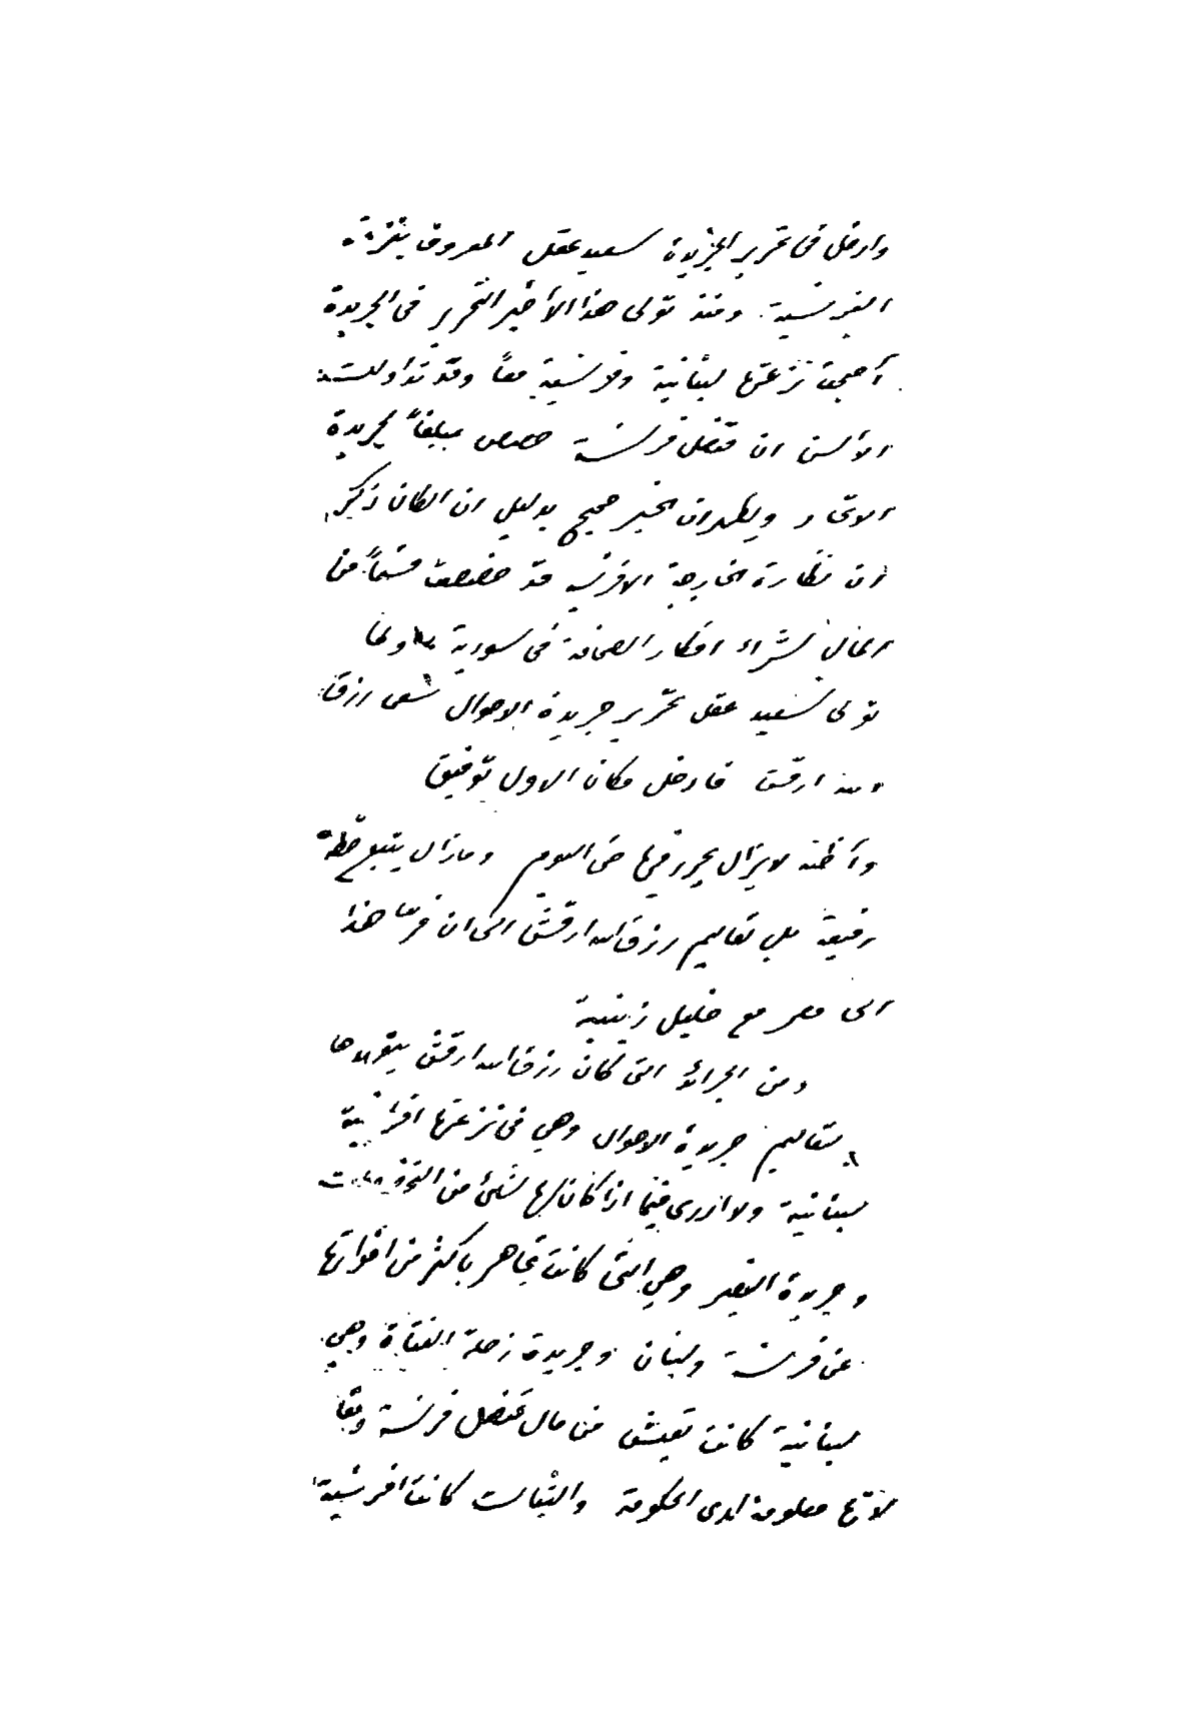 وادخل في تحرير الجريدة سعيد عقل المعروف بنزعته
الفرنسية. ومنذ تولى هذا الأخير التحرير في الجريدة
أصبحت نزعتها لبنانية وفرنسية معاً وقد تداولت
الألسن ان قنصل فرنسة خصص مبلغاً لجريدة
الاتحاد ويظهر ان الخبر صحيح بدليل ان الطان ذكر
ان نظارة الخارجية الافرنسية قد خصصت قسماً من
المال لشراء افكار الصحافة في سورية ولما
تولى سعيد عقل تحرير جريدة الاحوال سعى رزق
الله ارقش فادخل مكان الاول توفيق
وأظنه لا يزال يحرر فيها حتى اليوم وما زال يتبع خطة
رفيقه بل تعاليم رزق الله ارقش الى ان فر هذا
الى مصر مع خليل زينية
ومن الجرائد التي كان رزق الله ارقش
بتعاليم جريدة الاحوال وهي في نزعتها
لبنانية ولا ادري فيما اذا كان لها شيء من
وجريدة النصير وهي التي كانت تجاهر باكثر من اخواتها
عن فرنسة ولبنان وجريدة زحلة الفتاة وهي
لبنانية كانت تعيش من مال قنصل فرنسة
لانها معلومة لدى الحكومة والثبات كانت افرنسية